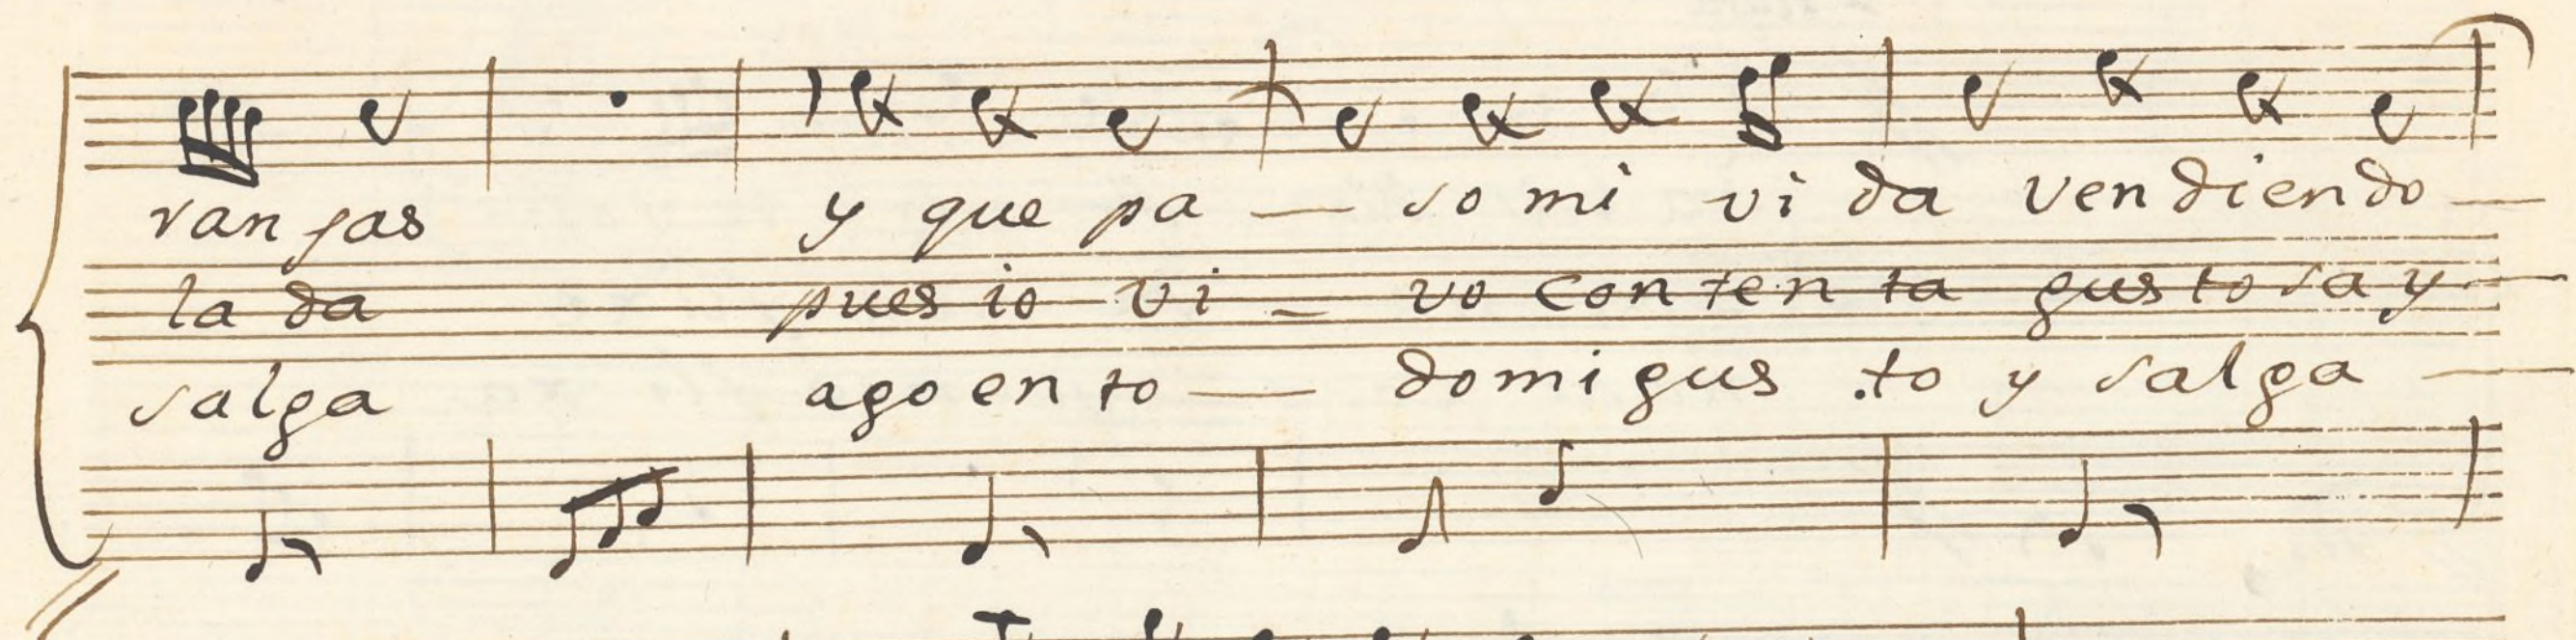 ran jas y que pa — so mi vi da ven diendo —
la da pues io vi — vo con ten ta gus to sa y —
salga ago en to — do mi gus to y salga —